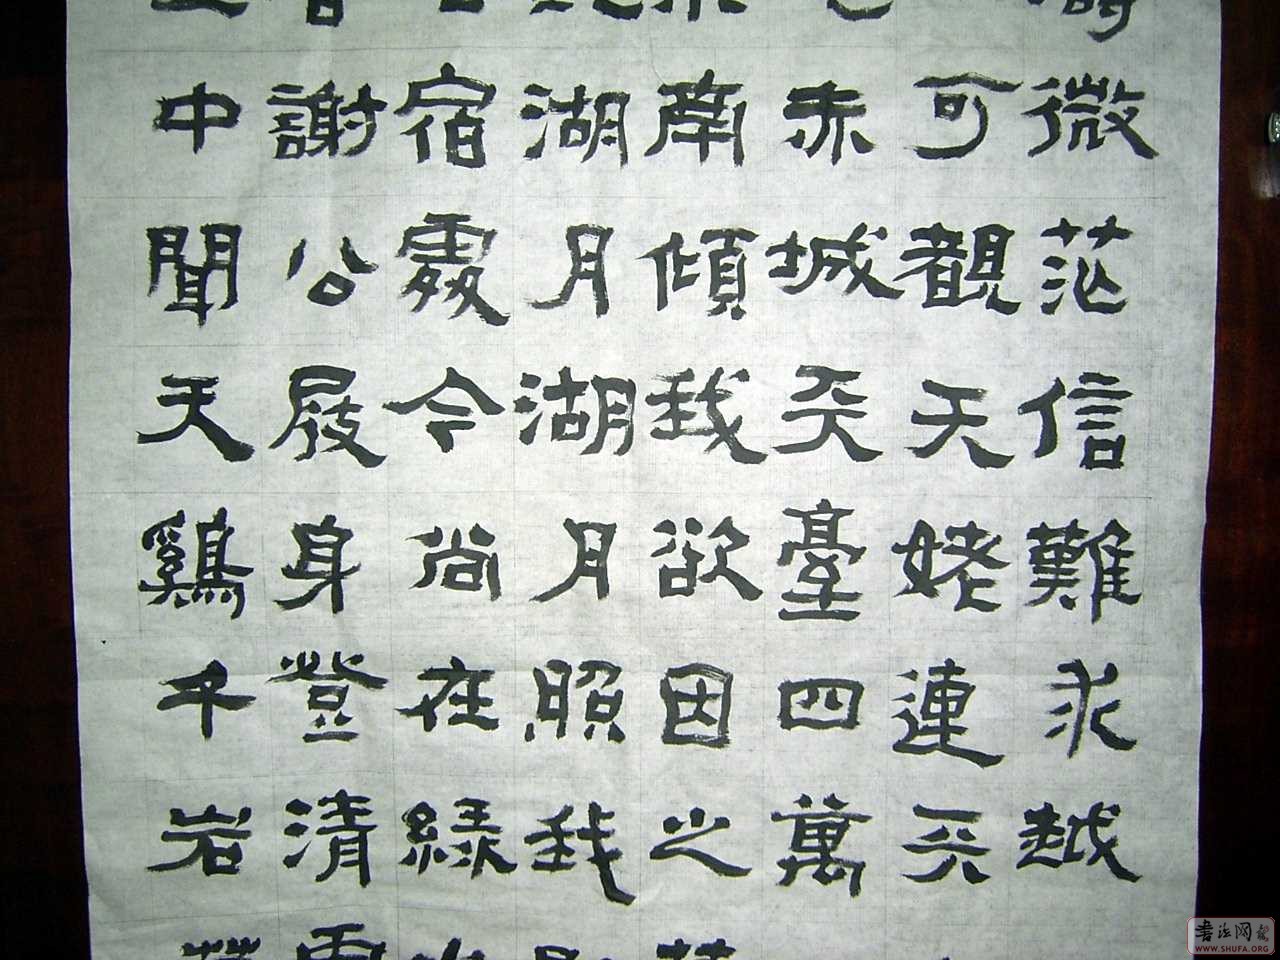 微茫信難求越
可觀天姥連天
赤城天臺四萬
南傾我欲因之
湖月湖月照我
宿處今尚在綠
謝公屐身登清
中聞天鷄千岩
书法网
WWW.SHUFA.ORG